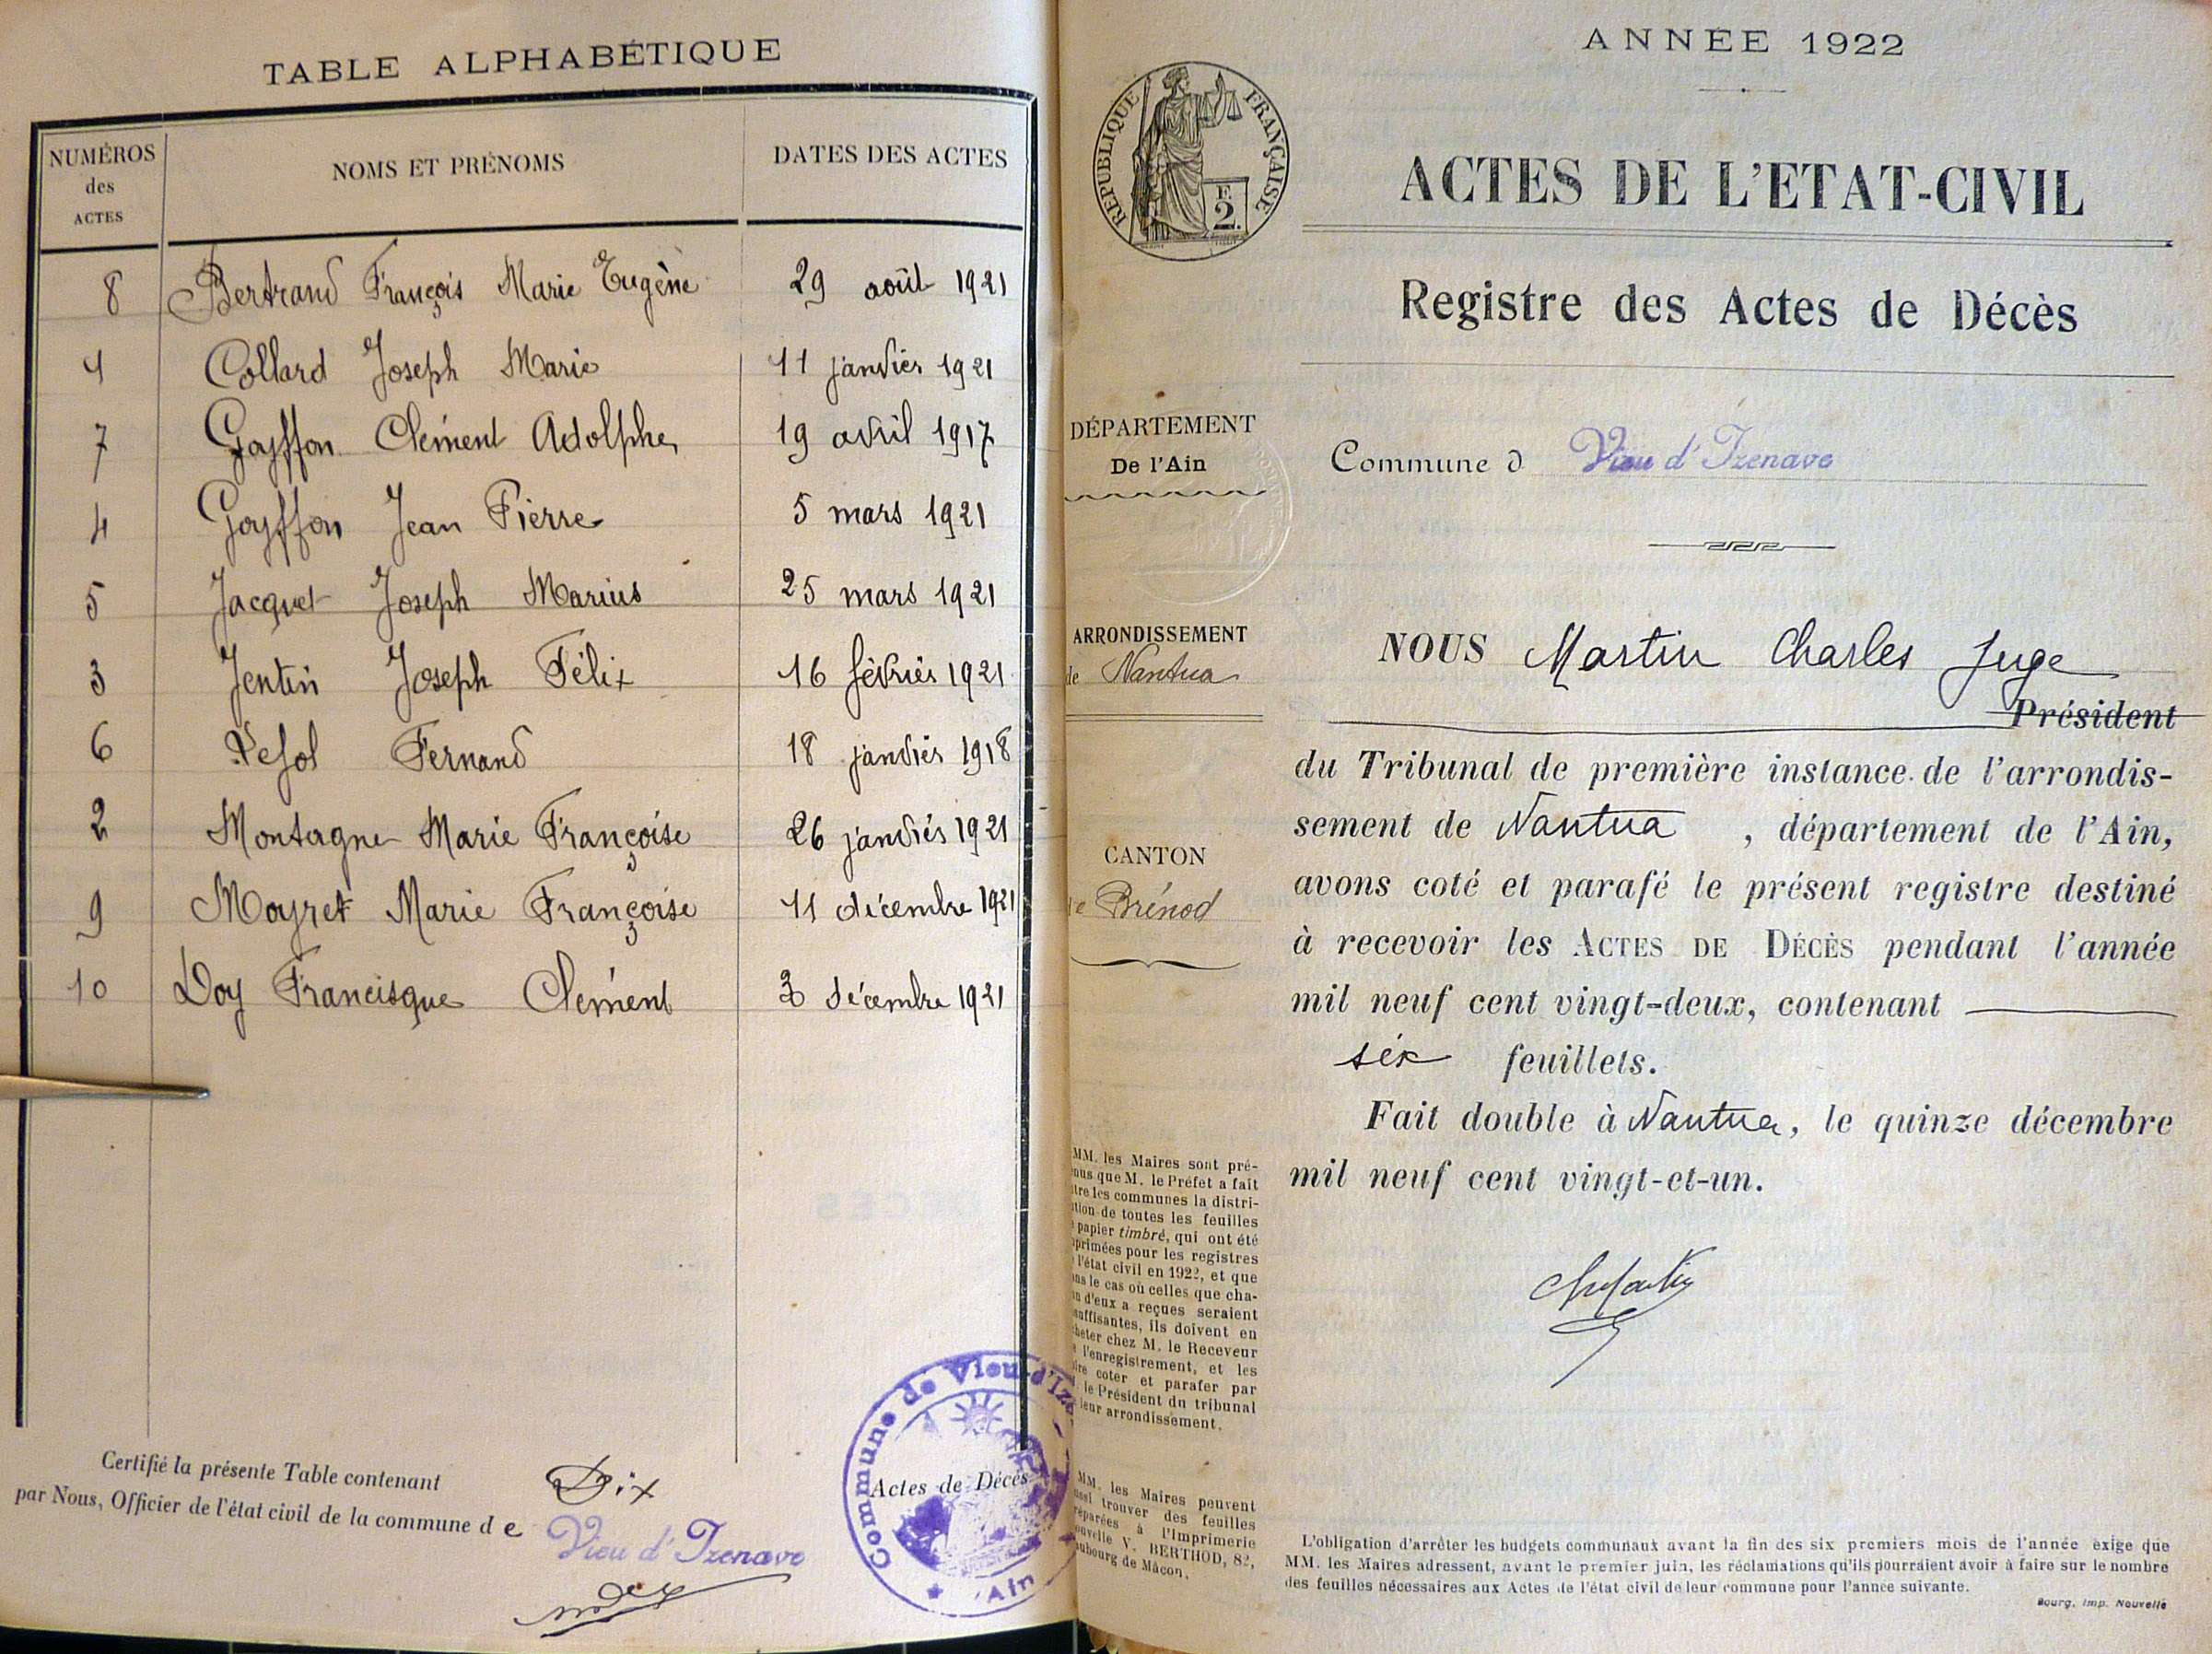 TABLE ALPHABÉTIQUE
NUMÉROS des ACTES
NOMS ET PRÉNOMS
DATES DES ACTES
8 Bertrand François Marie Eugène 29 août 1921
1 Collard Joseph Marie 11 janvier 1921
7 Goyffon Clément Adolphe 19 avril 1917
4 Goyffon Jean Pierre 5 mars 1921
5 Jacquet Joseph Marius 25 mars 1921
3 Jentin Joseph Félix 16 février 1921
6 Fernand 18 janvier 1918
2 Montagne Marie Françoise 26 janvier 1921
9 Moyret Marie Françoise 11 décembre 1921
10 Francisque Clément décembre 1921
Certifié la présente Table contenant Dix Actes de Décès
par Nous, Officier de l'état civil de la commune de Vieu d'Izenave
Commune de Vieu-d'Iz
Ain
ANNÉE 1922
RÉPUBLIQUE FRANÇAISE
F.
2.
ACTES DE L'ETAT-CIVIL
Registre des Actes de Décès
DÉPARTEMENT
De l'Ain
Commune d Vieu d'Izenave
ARRONDISSEMENT
de Nantua
CANTON
de Brénod
NOUS Martin Charles Juge
Président
du Tribunal de première instance de l'arrondis-
sement de Nantua, département de l'Ain,
avons coté et parafé le présent registre destiné
à recevoir les ACTES DE DÉCÈS pendant l'année
mil neuf cent vingt-deux, contenant
six feuillets.
Fait double à Nantua, le quinze décembre
mil neuf cent vingt-et-un.
ChMartin
MM. les Maires sont pré-
nus que M. le Préfet a fait
tre les communes la distri-
tion de toutes les feuilles
papier timbré, qui ont été
primées pour les registres
l'état civil en 1922, et que
ns le cas où celles que cha-
n d'eux a reçues seraient
suffisantes, ils doivent en
heter chez M. le Receveur
l'enregistrement, et les
ire coter et parafer par
le Président du tribunal
leur arrondissement.
MM. les Maires peuvent
ssi trouver des feuilles
réparées à l'Imprimerie
ouvelle V. BERTHOD, 82,
ubourg de Mâcon.
L'obligation d'arrêter les budgets communaux avant la fin des six premiers mois de l'année exige que
MM. les Maires adressent, avant le premier juin, les réclamations qu'ils pourraient avoir à faire sur le nombre
des feuilles nécessaires aux Actes de l'état civil de leur commune pour l'année suivante.
Bourg, Imp. Nouvelle